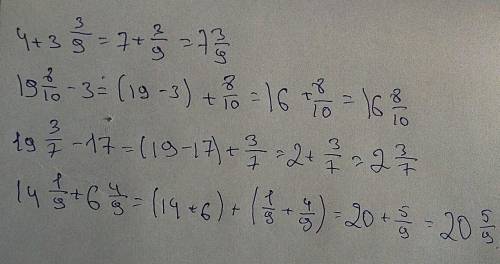 4+3 3/9 = 7+ 3/9 = 7 3/9
19 8/10 - 3 = (19-3) + 8/10 = 16 + 8/10 = 16 8/10
19 3/7 - 17 = (19-17) + 3/7 = 2 + 3/7 = 2 3/7
14 1/9 + 6 4/9 = (14+6) + (1/9 + 4/9) = 20 + 5/9 = 20 5/9